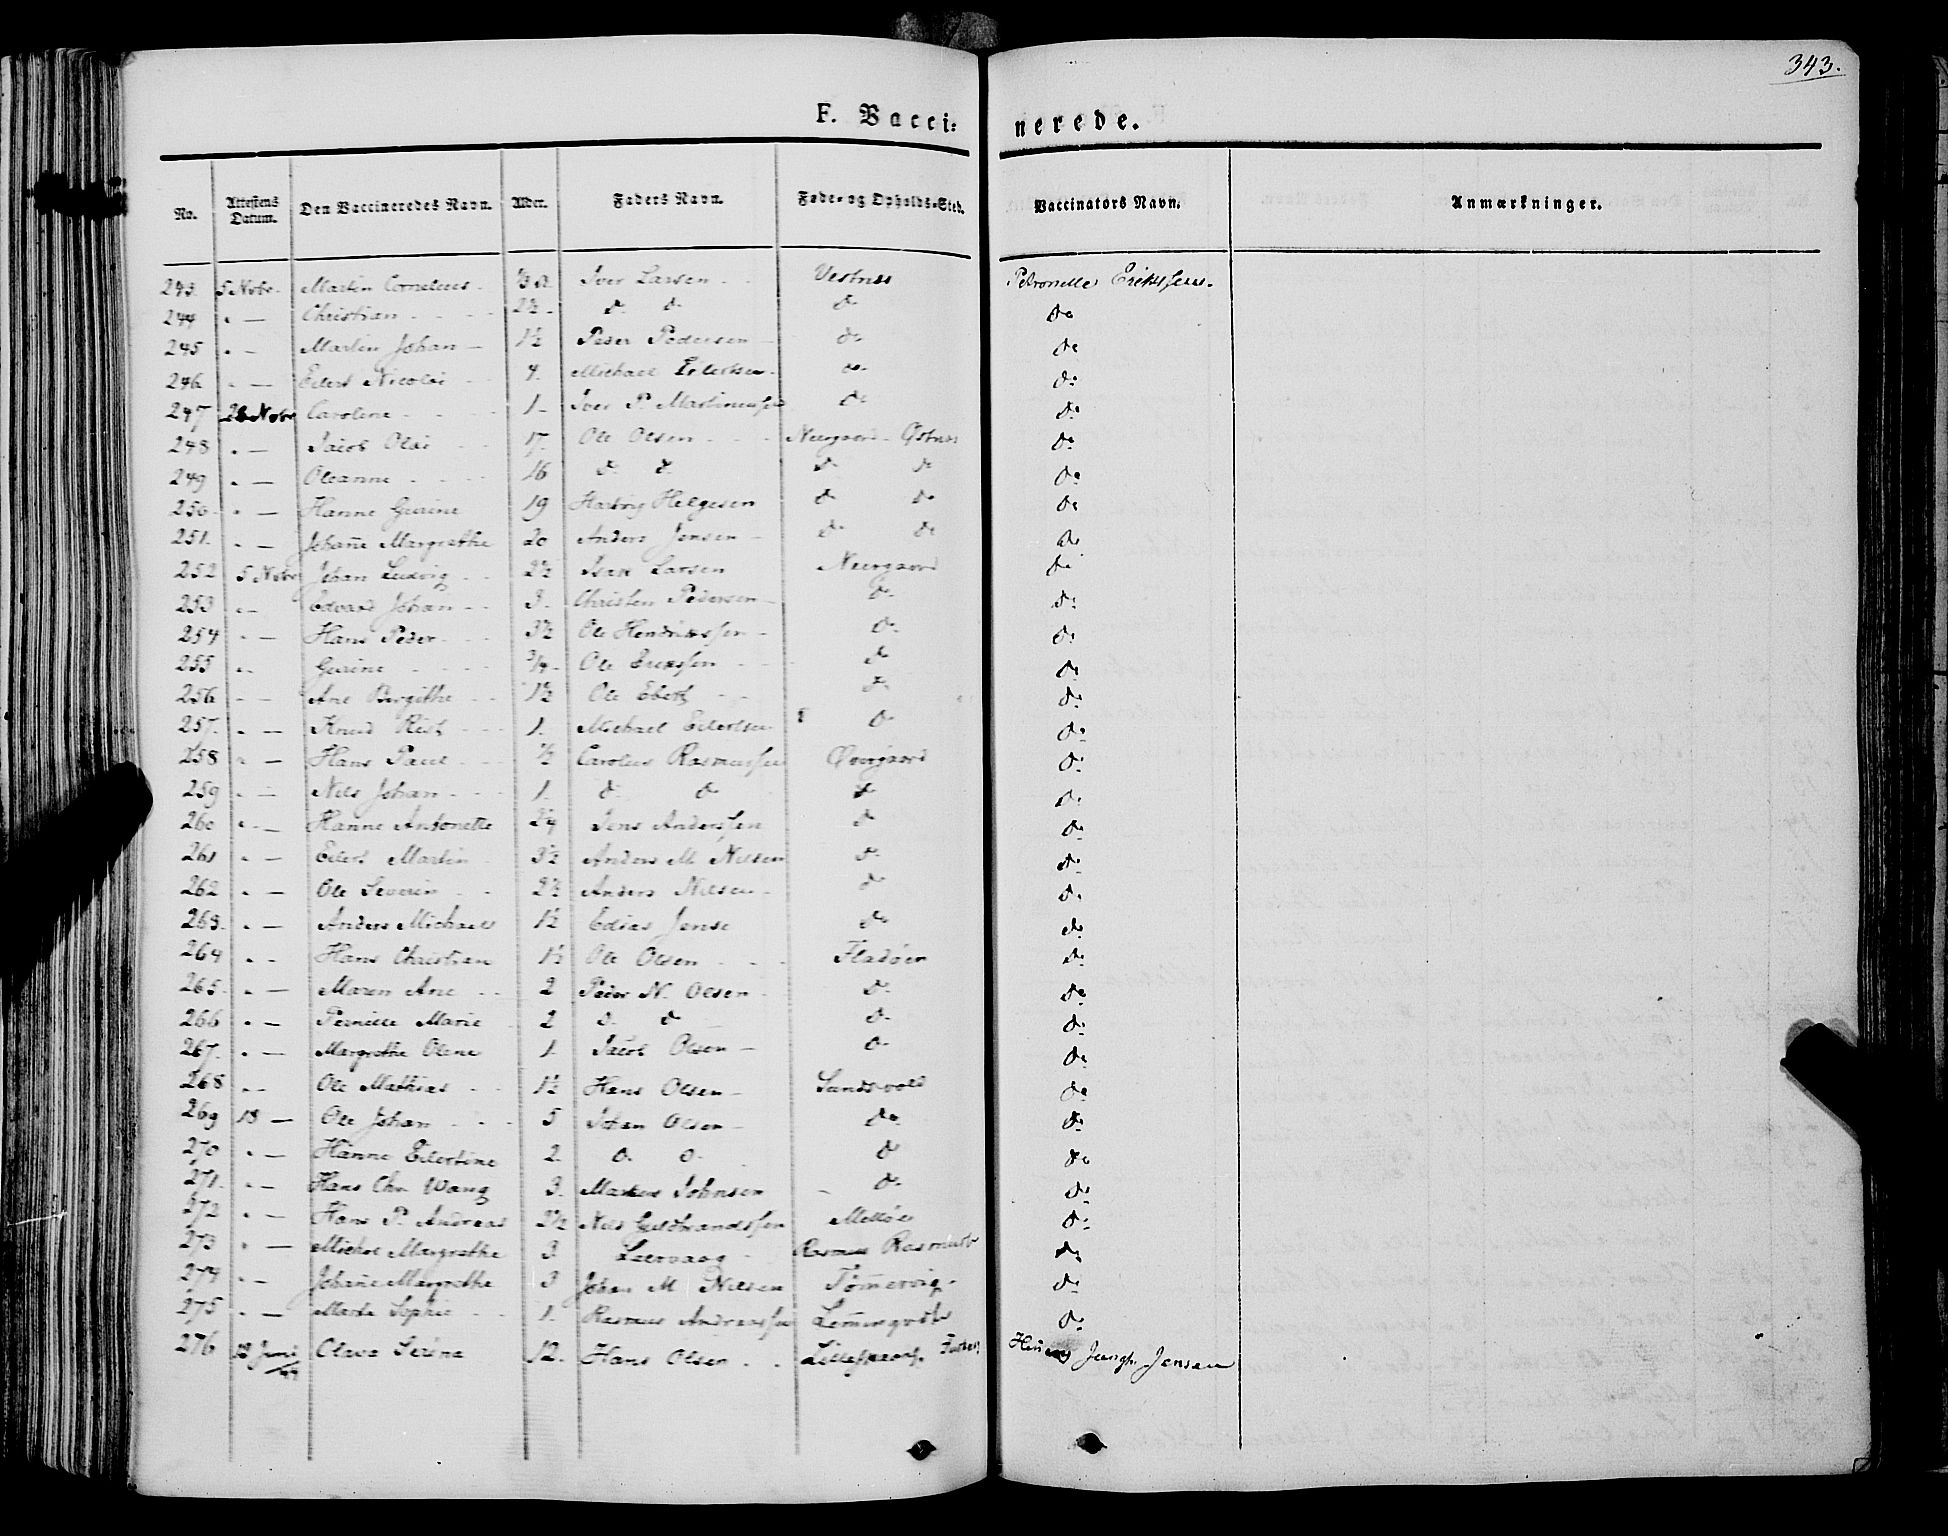 343.
F. Vacci: nerede.
No. Attestens Datum. Den Vaccineredes Navn. Alder. Faders Navn. Føde- og Opholds-Sted. Vaccinators Navn. Anmærkninger.
243. 5 Novbr Martin Cornelius - Iver Larsen - - Vestnæs Petronelle Erikssen.
244 " — Christian - - - - 2½ - do do do do
245 " — Martin Johan — 1½ Peder Pedersen — do do
246 " — Eilert Nicolai - - 4. Michael Eilertsen - do do
247 26 Novbr Caroline - - - - 1 - Iver P. Martinussen do do
248 " — Jacob Olai - - 17. Ole Olsen - - - Neergaard - Østnæs do
249 " — Oleanne - - - - 16 do do do do do
250 " — Hanne Gurine 19 Hartvig Helgesen do do do
251. " — Johañe Margrethe 20 Anders Jensen — do do do
252 5 Novbr Johan Ludvig - - 2½ Isak Larsen Neergaard do
253 " — Edvard Johan - - 3. Christen Pedersen — do do
254 " — Hans Peder - - - 3½ Ole Hendrikssen — do do
255 " - Gurine - - - - ¾ - Ole Erikssen - - do do
256 - - Ane Bergithe - - 1½ Ole Ebert - - do do
257. " — Knud - - - 1. Michael Eilertsen do do
258 " — Hans Paul - - - ½ Carolus Rasmussen Øvergaard do
259 " — Nils Johan - - - 1. do do do do
260 " — Hanne Antonette Jens Anderssen do do
261 " — Eilert Martin - 3½ Anders M. Nilsen do do
262 " — Ole Severin - - 2½ Anders Nilsen - do do
263. " — Anders Michael 1½ Edias Jense do do
264 " - Hans Christian 1½ Ole Olsen - - - Fladøen do
265. " — Maren Ane - - 2 Peder N. Olsen - do do
266 " — Pernille Marie - 2 do do do do
267. " — Margrethe Olene 1. Jacob Olsen — do do
268 " - Ole Mathias - - 1½ Hans Olsen — Sandsvold do
269 18 — Ole Johan - - - 5 Johan Olsen — do do
270 " — Hanne Eilertine 2. do do do do
271. " - Hans Chr. Wang 3. Johnsen - do do
272 " — Hans P. Andreas 2½ Nils Guldbrandssen do
273 " — Margrethe 3. Leervaag - Rasmus do
274 " - Johañe Margrethe 3 Johan M Nilsen Tøm̃ervig - do
275 " - Sophie - - 1. Rasmus Andreassen do
276 Juni Olava Serine 12. Hans Olsen - - Jensen